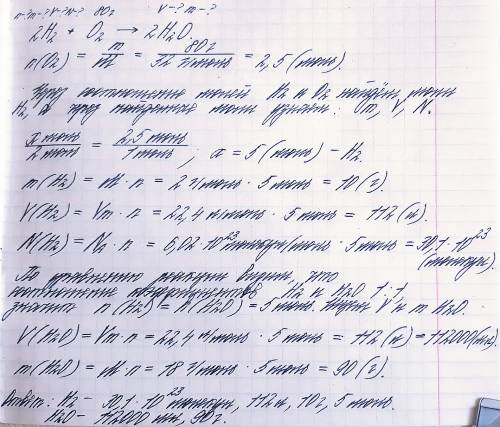 n-? m-? V-? N-? 80г V-? m-?
2H₂ + O₂ → 2H₂O.
n(O₂) = m/M = 80г / 32 г/моль = 2,5 (моль).
Чрез соотношение молей H₂ и O₂ найдём моли
H₂, а чрез найденные моли узнаем: m, V, N.
x моль / 2 моль = 2,5 моль / 1 моль ; x = 5 (моль) - H₂.
m(H₂) = M · n = 2 г/моль · 5 моль = 10 (г).
V(H₂) = Vm · n = 22,4 л/моль · 5 моль = 112 (л).
N(H₂) = Nₐ · n = 6,02·10²³ молекул/моль · 5 моль = 30,1·10²³
(молекул).
По уравнению реакции видим, что
соотношение коэффициентов H₂ и H₂O 1:1,
значит n(H₂) = n(H₂O) = 5 моль. V и m H₂O.
V(H₂O) = Vm · n = 22,4 л/моль · 5 моль = 112 (л) = 112000 (мл).
m(H₂O) = M · n = 18 г/моль · 5 моль = 90 (г).
Ответ: H₂ - 30,1 · 10²³ молекул, 112л, 10г, 5 моль.
H₂O - 112000 мл, 90г.